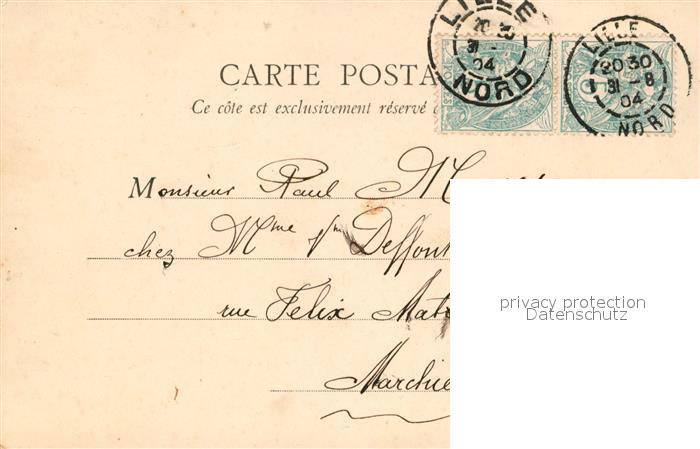 LILLE
20 30
31
04
NORD
LILLE
20 30
31 - 8
04
NORD
CARTE POSTA
Ce côte est exclusivement réservé
Monsieur Paul M
chez Mme Deffont
rue Felix Mat
Marchie
privacy protection
Datenschutz